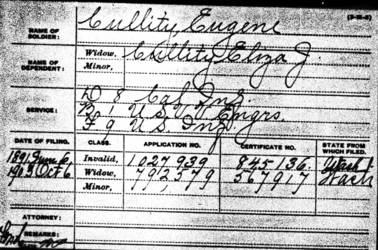 (3-a-2)
NAME OF SOLDIER: Cullity, Eugene
NAME OF DEPENDENT: Widow, Cullity, Eliza J.
Minor,
SERVICE: D 8 Cal Inf.
B 1 U.S. V. Engrs.
F 9 U.S. Inf.
DATE OF FILING. CLASS. APPLICATION NO. CERTIFICATE NO. STATE FROM WHICH FILED.
1891 June 6, Invalid, 1.027.939 845.136. Wash
1903 Oct 6 Widow, 792,579 567917 Wash
Minor,
ATTORNEY:
REMARKS: